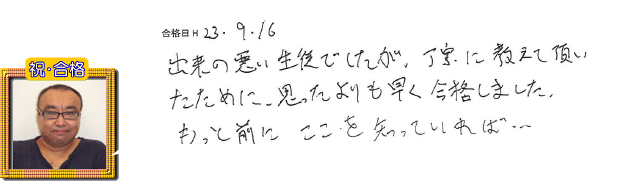 合格日 H 23.9.16
祝・合格
出来の悪い生徒でしたが、丁寧に教えて頂い
たために、思ったよりも早く合格しました。
もっと前に ここを知っていれば…